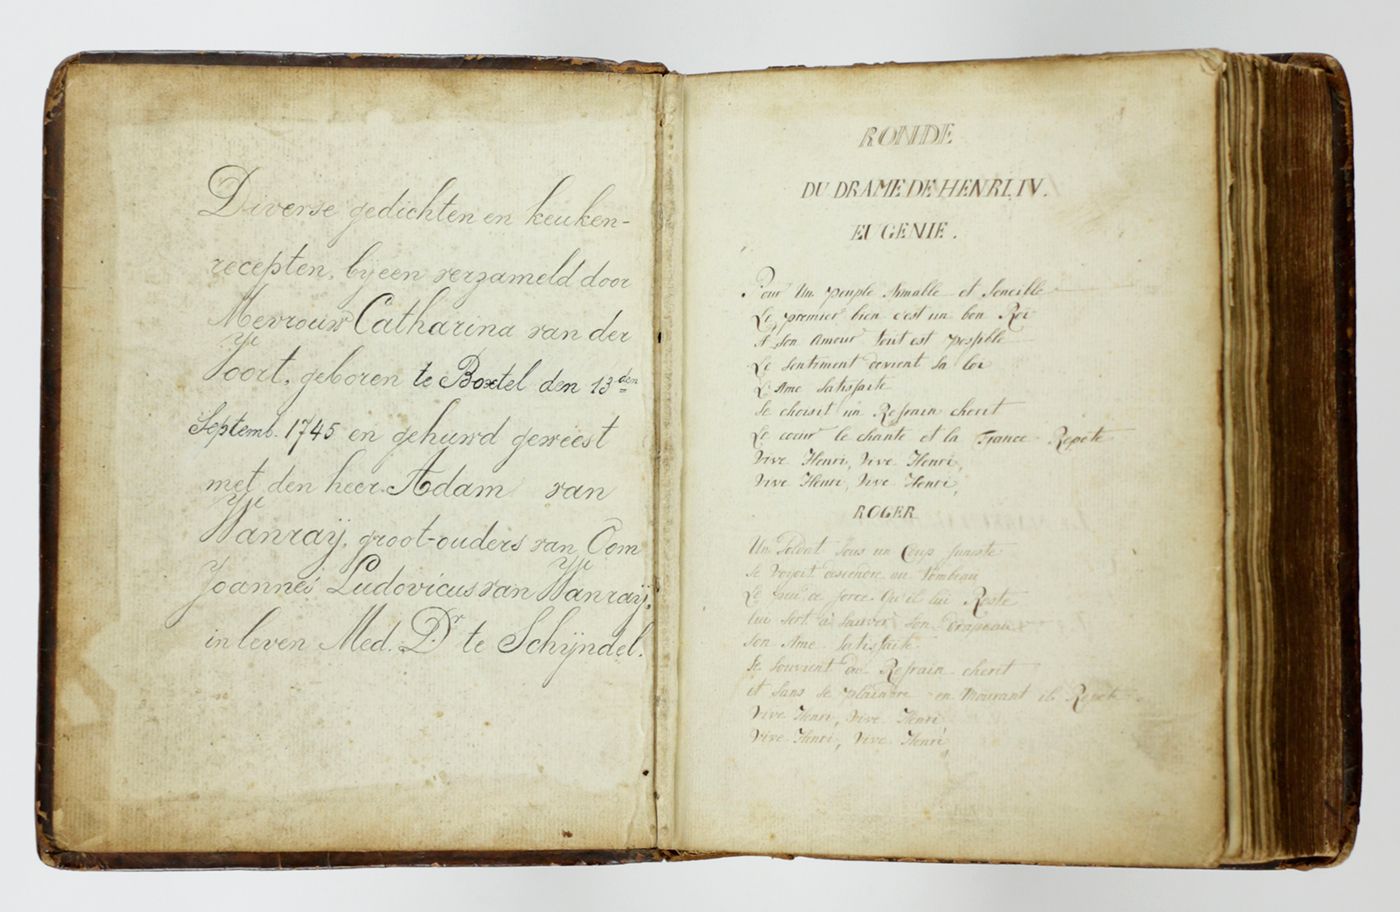 Diverse gedichten en keuken-
recepten, bijeen verzameld door
Mevrouw Catharina van der
Voort, geboren te Boxtel den 13den
Septemb. 1745 en gehuwd geweest
met den heer Adam van
Wanraij, groot-ouders van Oom
Joannes Ludovicus van Wanraij,
in leven Med. Dr te Schijndel.
RONDE
DU DRAME DE HENRI, IV.
EUGENIE.
Pour Un peuple Aimable et Sensible
Le premier bien c'est un bon Roi
A Son Amour tout est possible
Le Sentiment devient Sa loi
L'Ame Satisfaite
Se choisit un Refrain cherit
Le coeur le chante et la France Repete
Vive Henri, Vive Henri,
Vive Henri, Vive Henri,
ROGER
Un Soldat Sous un Coup funeste
Se voyoit descendre au tombeau
Le peu de force Qu'il lui Reste
lui Sert a Sauver Son Drapeau
Son Ame Satisfaite
Se Souvient du Refrain cherit
et Sans Se plaindre en Mourant il Repete
Vive Henri, Vive Henri
Vive Henri, Vive Henri,